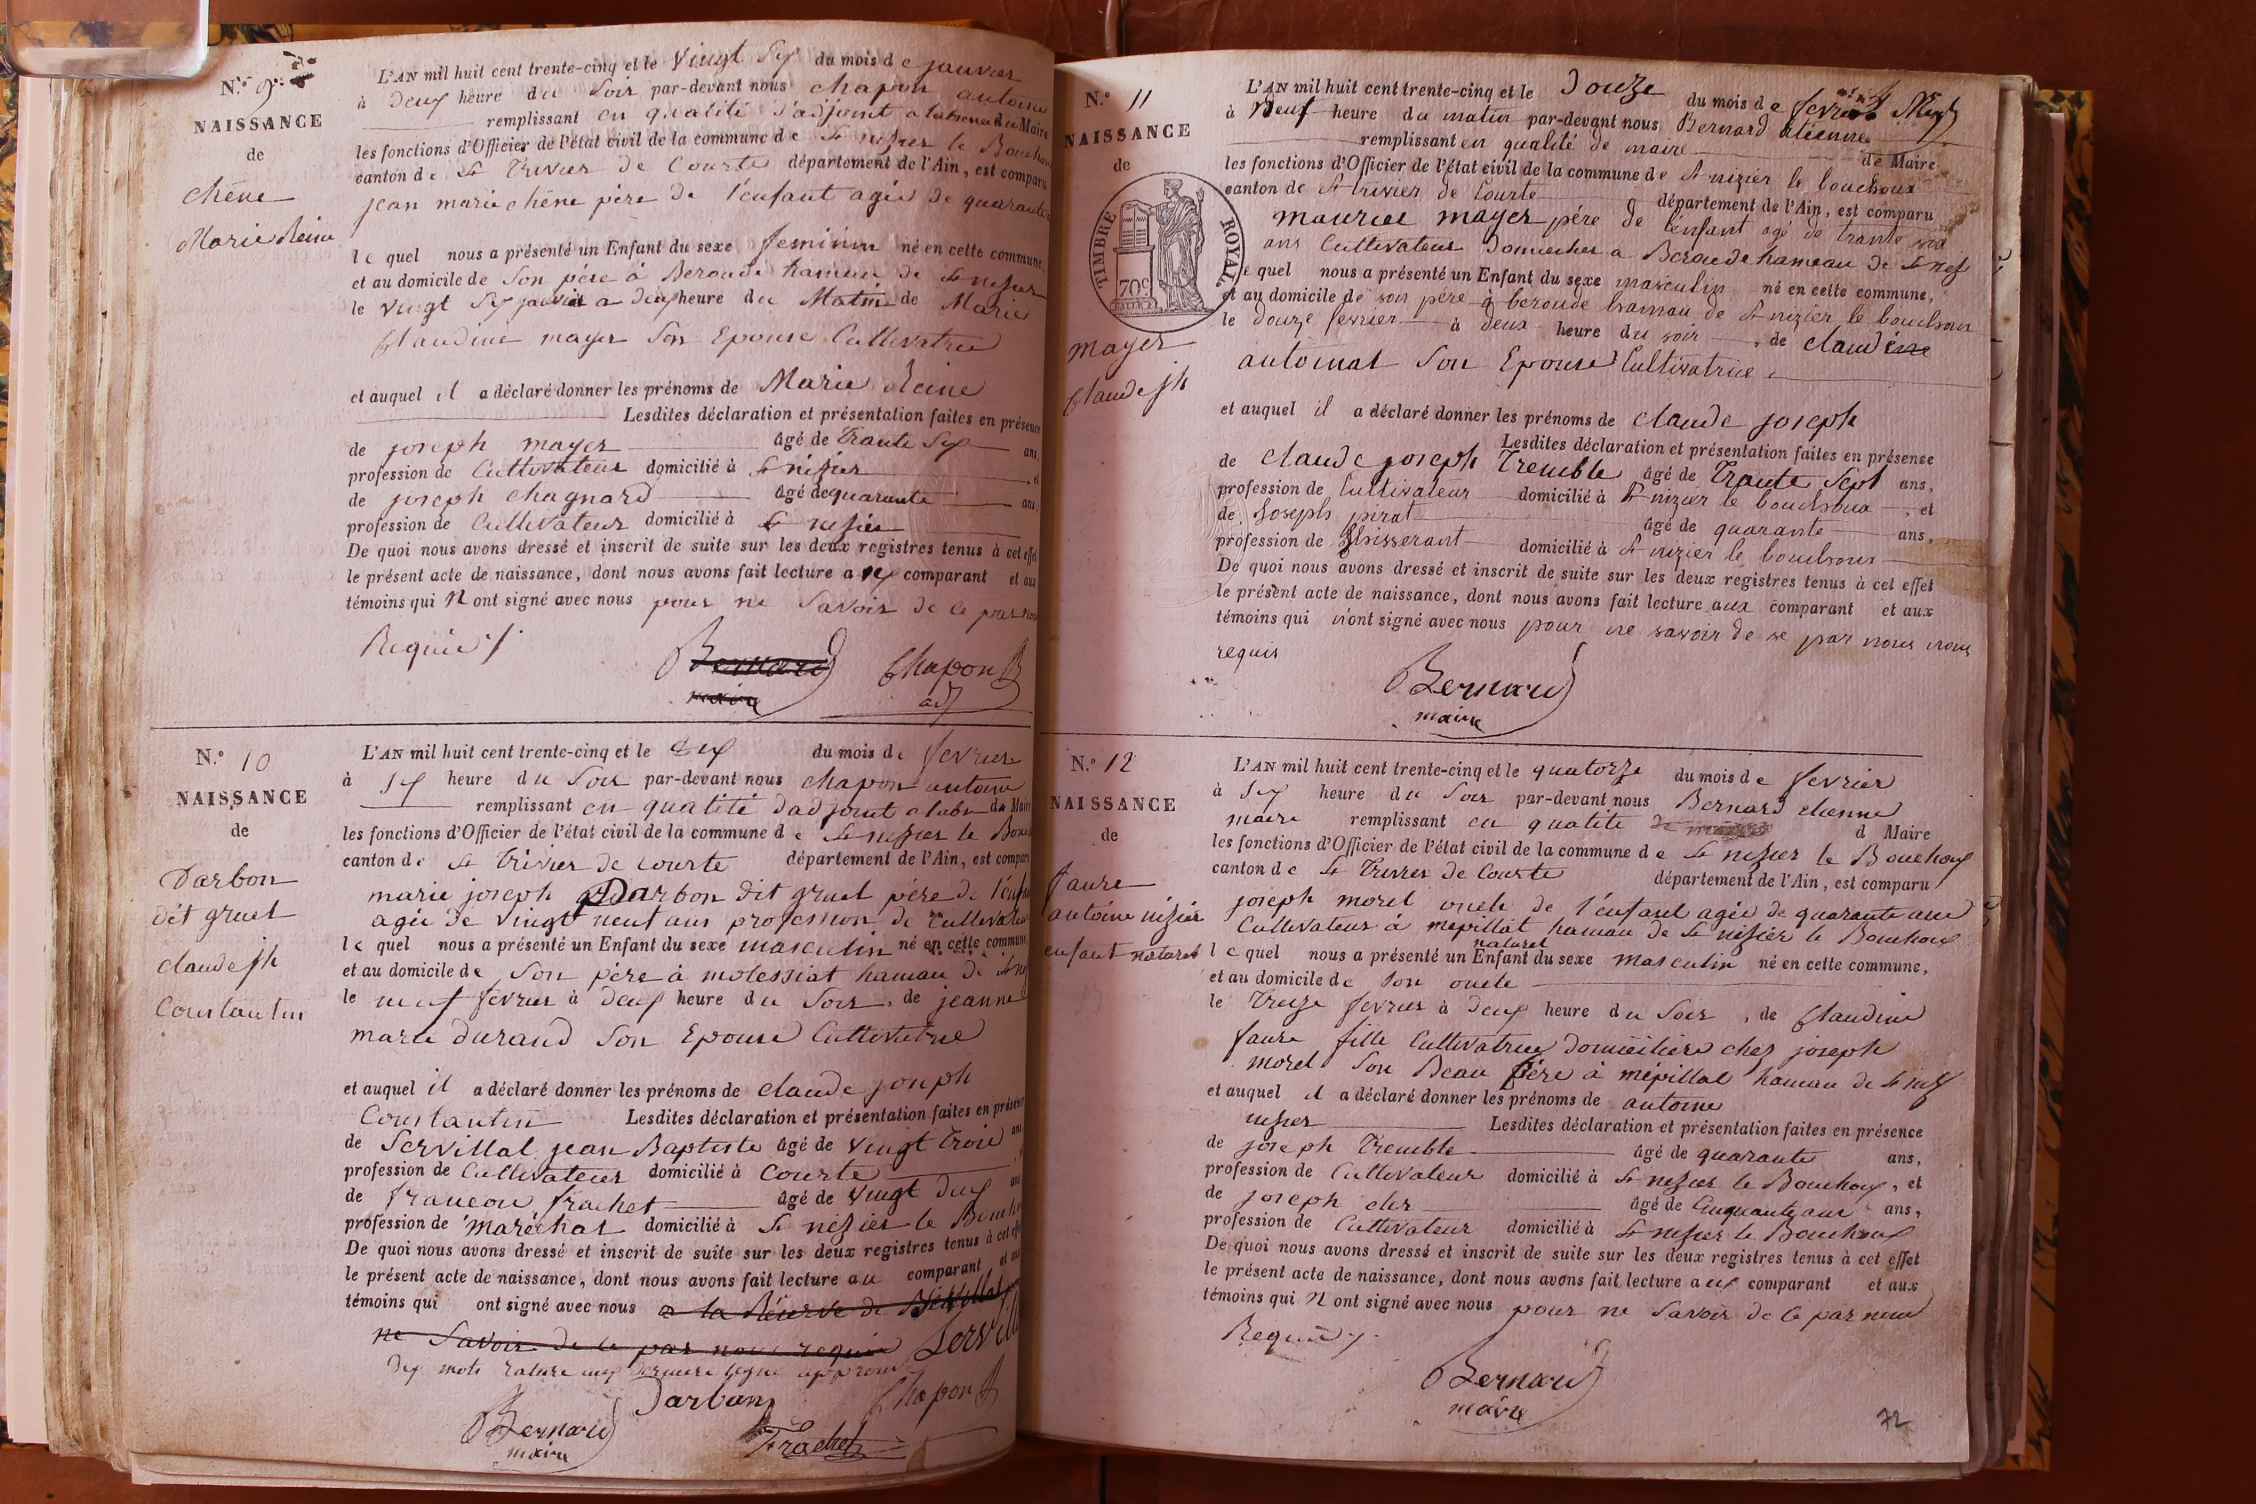 N.º 9
NAISSANCE
de
chêne
Marie Reine
L'AN mil huit cent trente-cinq et le vingt Six du mois de janvier
à deux heure du Soir par-devant nous chapon antoine
remplissant en qualité d'adjoint du Maire
les fonctions d'Officier de l'état civil de la commune de St nisier le Bouchoux
canton de St Trivier de Courte département de l'Ain, est comparu
jean marie chêne père de l'enfant agée de quarante
le quel nous a présenté un Enfant du sexe feminin né en cette commune,
et au domicile de Son père à Beroude hameau de St nisier
le vingt Six janvier a deux heure du Matin de Marie
Claudine mayer Son Epouse Cultivatrice
et auquel il a déclaré donner les prénoms de Marie Reine
Lesdites déclaration et présentation faites en présence
de joseph mayer âgé de Trante Six ans,
profession de Cultivateur domicilié à St nisier et
de joseph chagnard âgé de quarante ans,
profession de Cultivateur domicilié à St nisier
De quoi nous avons dressé et inscrit de suite sur les deux registres tenus à cet effet
le présent acte de naissance, dont nous avons fait lecture aux comparant et aux
témoins qui n ont signé avec nous pour ne Savoir de ce par nous
Requie
Bernard Chapon
maire adj
N.º 10
NAISSANCE
de
Darbon
dit gruet
claude jh
Constantin
L'AN mil huit cent trente-cinq et le dix du mois de fevrier
à six heure du Soir par-devant nous chapon antoine
remplissant en qualité dadjoint du Maire
les fonctions d'Officier de l'état civil de la commune de St nisier le Bou
canton de St Trivier de Courte département de l'Ain, est comparu
marie joseph Darbon dit gruet père de l'enfant
agée de vingt neuf ans profession de Cultivateur
le quel nous a présenté un Enfant du sexe masculin né en cette commune
et au domicile de Son père à molessiat hameau de St nis
le neuf fevrier à deux heure du Soir, de jeanne
marie durand Son Epouse Cultivatrice
et auquel il a déclaré donner les prénoms de claude joseph
Constantin Lesdites déclaration et présentation faites en présence
de Servillat jean Baptiste âgé de vingt trois ans
profession de Cultivateur domicilié à Courte
de francou frachet âgé de vingt deux ans
profession de maréchat domicilié à St nisier le Bouch
De quoi nous avons dressé et inscrit de suite sur les deux registres tenus à cet effet
le présent acte de naissance, dont nous avons fait lecture au comparant et aux
témoins qui ont signé avec nous a la Réserve de Servillat
ne Savoir de ce par nous requie Servill
Dix mots rature aux derniere ligne approuvé
Darbon Chapon
Bernard Frachet
maire
N.º 11
NAISSANCE
de
TIMBRE ROYAL
70c
mayer
Claude jh
L'AN mil huit cent trente-cinq et le Douze du mois de fevrier
à Neuf heure du matin par-devant nous Bernard etienne
remplissant en qualité de maire de Maire
les fonctions d'Officier de l'état civil de la commune de St nizier le bouchoux
canton de St trivier de Courte département de l'Ain, est comparu
maurice mayer père de l'enfant agé de trante
ans Cultivateur Domicilier a Beroude hameau de St nis
le quel nous a présenté un Enfant du sexe masculin né en cette commune,
et au domicile de son père à beroude hamau de St nizier le bouchoux
le douze fevrier à deux heure du soir, de claudine
automat Son Epouse Cultivatrice
et auquel il a déclaré donner les prénoms de claude joseph
Lesdites déclaration et présentation faites en présence
de claude joseph Tremble âgé de Trante Sept ans,
profession de Cultivateur domicilié à St nizier le bouchoux, et
de joseph pirat âgé de quarante ans,
profession de thisserant domicilié à St nizier le bouchoux
De quoi nous avons dressé et inscrit de suite sur les deux registres tenus à cet effet
le présent acte de naissance, dont nous avons fait lecture aux comparant et aux
témoins qui n'ont signé avec nous pour ne savoir de ce par nous
requis
Bernard
maire
N.º 12
NAISSANCE
de
faure
antoine nisier
enfant naturel
L'AN mil huit cent trente-cinq et le quatorze du mois de fevrier
à six heure du Soir par-devant nous Bernard etienne
maire remplissant en qualité d Maire
les fonctions d'Officier de l'état civil de la commune de St nisier le Bouchoux
canton de St Trivier de Courte département de l'Ain, est comparu
joseph morel oncle de l'enfant agée de quarante ans
Cultivateur à mepillat hameau de St nisier le Bouchoux
naturel
le quel nous a présenté un Enfant du sexe masculin né en cette commune,
et au domicile de Son oncle
le Treize fevrier à deux heure du Soir, de Claudine
faure fille Cultivatrice domicilière chez joseph
morel Son Beau frère à mépillat hameau de St nis
et auquel il a déclaré donner les prénoms de antoine
nisier Lesdites déclaration et présentation faites en présence
de joseph Tremble âgé de quarante ans,
profession de Cultivateur domicilié à St nisier le Bouchoux, et
de joseph cler âgé de Cinquante ans ans,
profession de Cultivateur domicilié à St nisier le Bouchoux
De quoi nous avons dressé et inscrit de suite sur les deux registres tenus à cet effet
le présent acte de naissance, dont nous avons fait lecture aux comparant et aux
témoins qui n ont signé avec nous pour ne Savoir de ce par nous
Requie
Bernard
maire
72